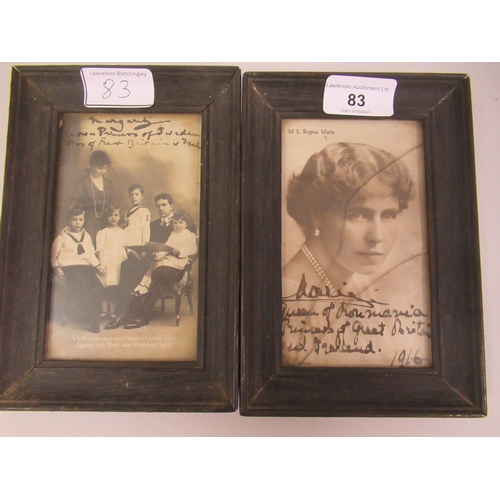 Lawrences Bletchingley
83
Margaret
Crown Princess of Sweden
Pss of Great Britain &
Lawrences Auctioneers Ltd
83
M. S. Regina Maria
Marie
Queen of Roumania
Princess of Great Britain
and Ireland.
1916